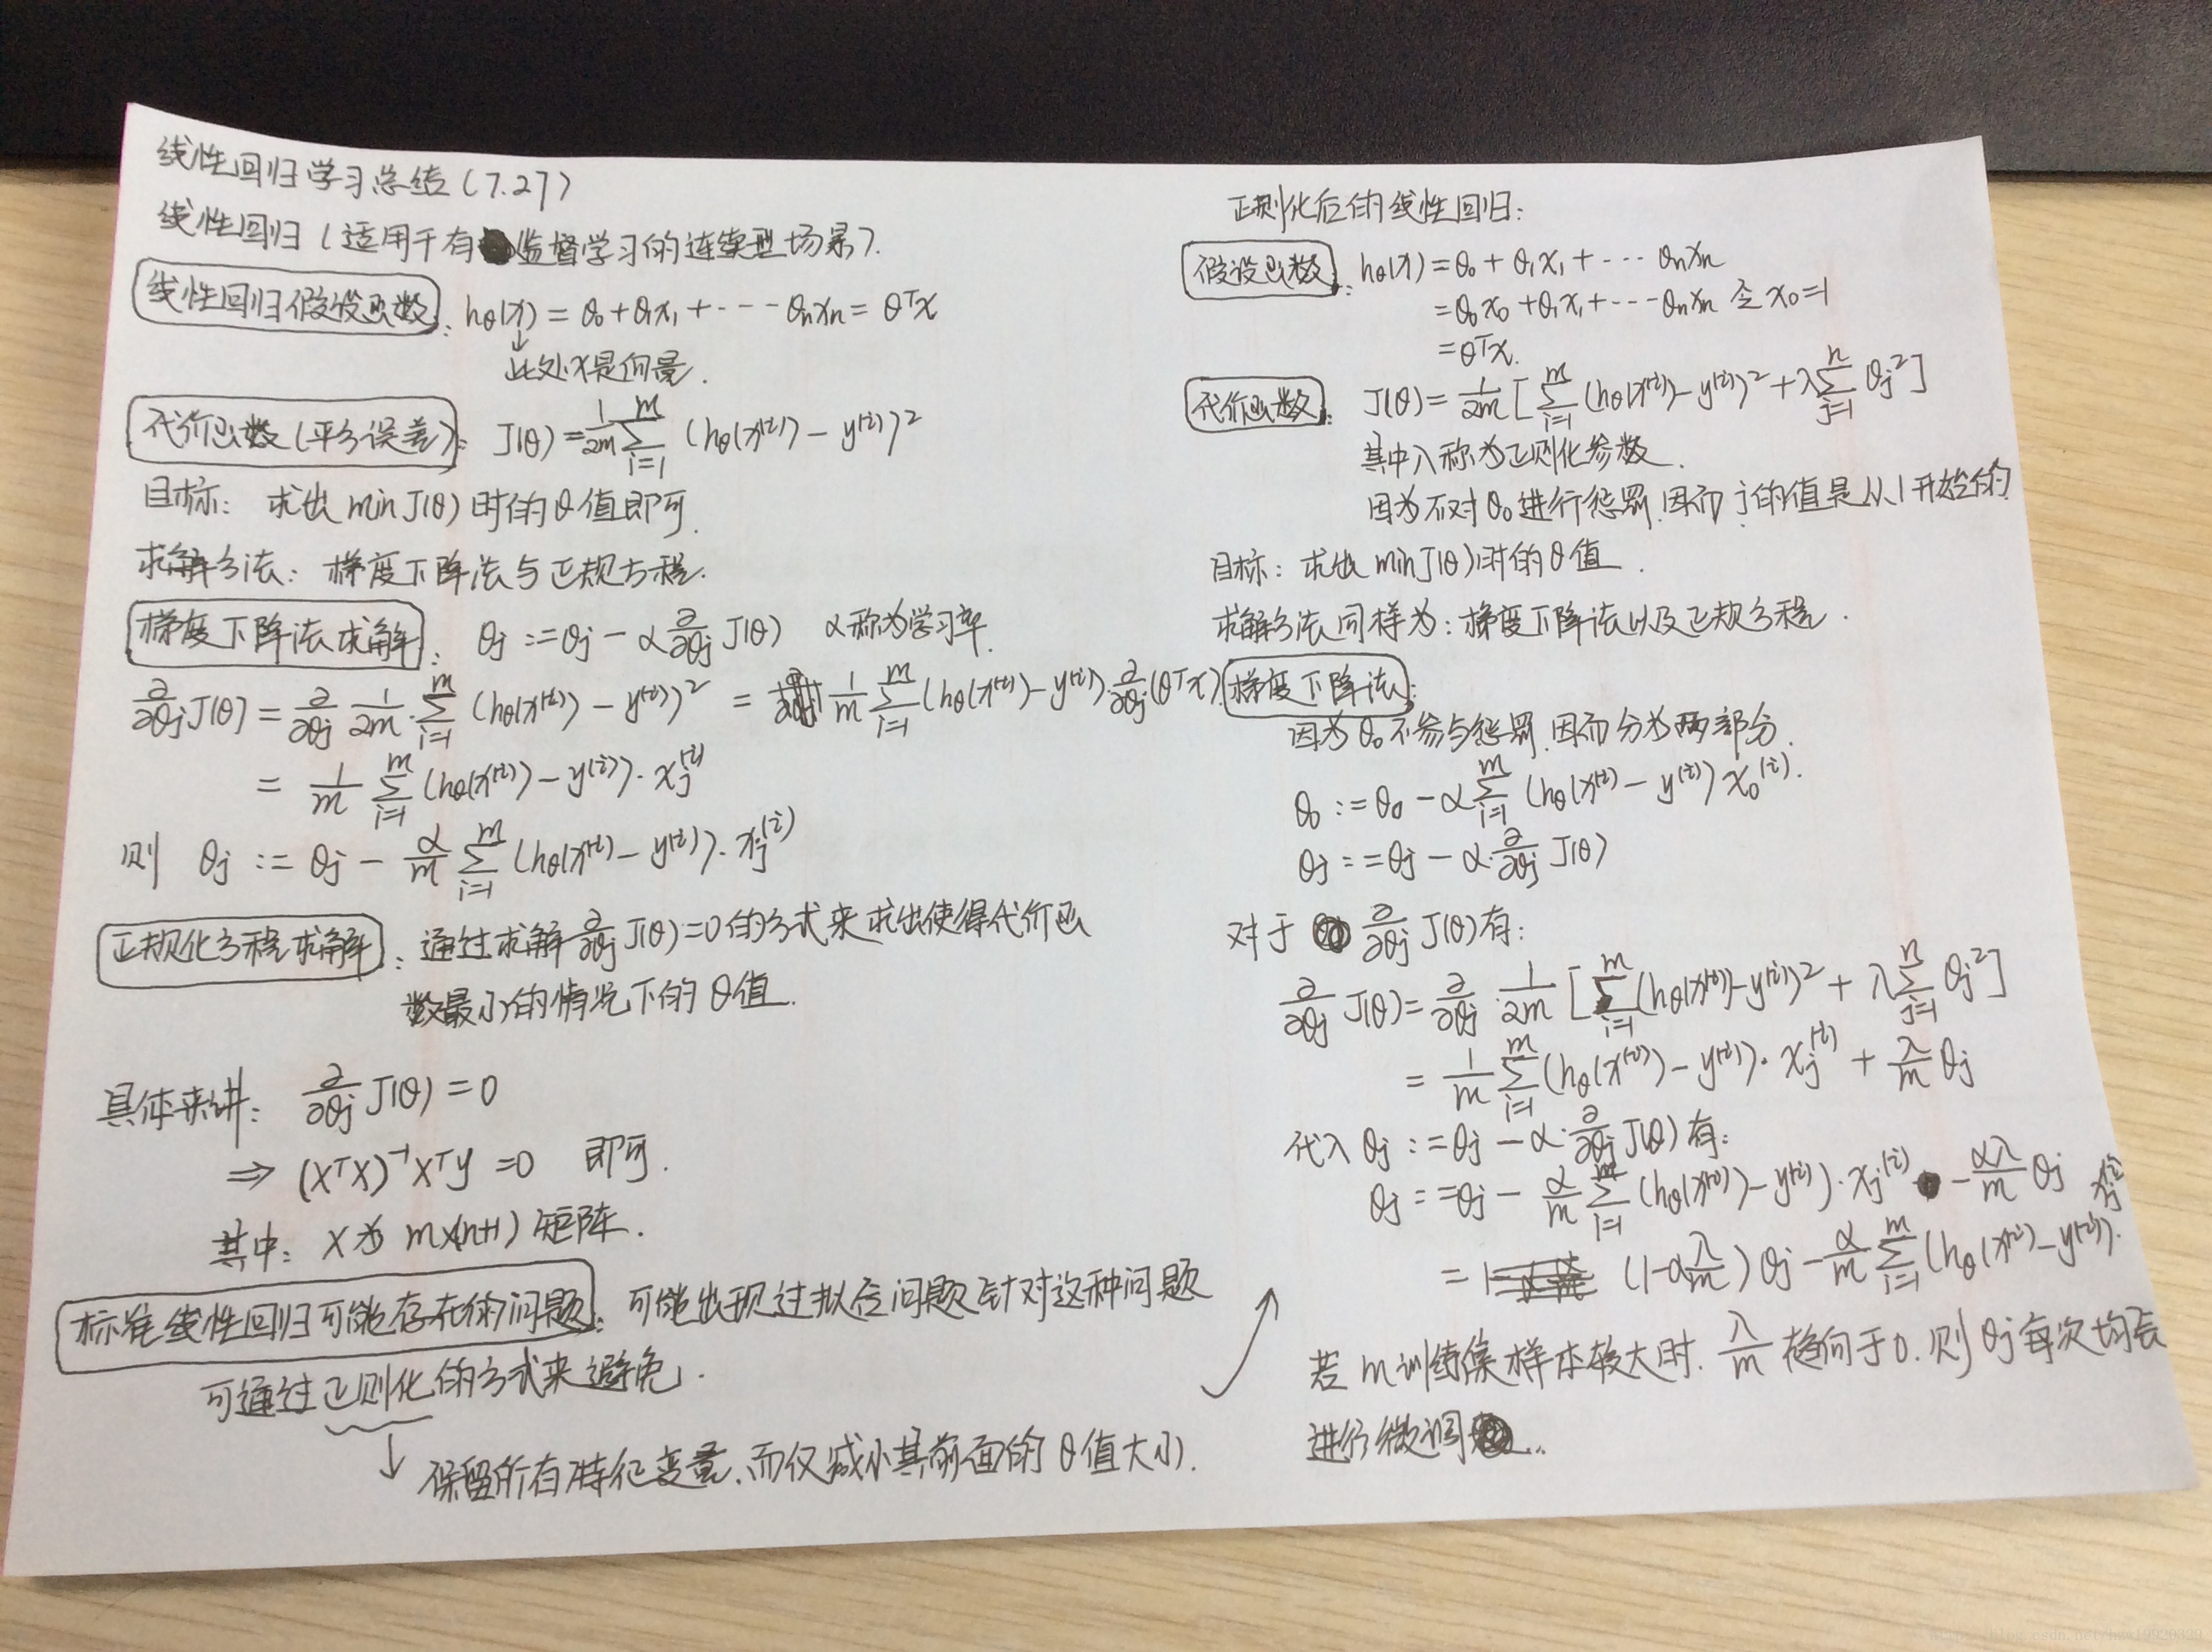 线性回归学习总结(7.27)
线性回归(适用于有监督学习的连续型场景).
线性回归假设函数: hθ(x) = θ₀ + θ₁x₁ + ---- θₙxₙ = θᵀx
↓
此处x是向量.
代价函数(平方误差): J(θ) = 1/2m ∑_{i=1}^{m} (hθ(x⁽ⁱ⁾) - y⁽ⁱ⁾)²
目标: 求出 min J(θ) 时的θ值即可.
求解方法: 梯度下降法与正规方程.
梯度下降法求解: θj := θj - α ∂/∂θj J(θ) α称为学习率.
∂/∂θj J(θ) = ∂/∂θj 1/2m · ∑_{i=1}^{m} (hθ(x⁽ⁱ⁾) - y⁽ⁱ⁾)² = 1/m ∑_{i=1}^{m} (hθ(x⁽ⁱ⁾) - y⁽ⁱ⁾) · ∂/∂θj (θᵀx)
= 1/m ∑_{i=1}^{m} (hθ(x⁽ⁱ⁾) - y⁽ⁱ⁾) · xj⁽ⁱ⁾
则 θj := θj - α/m ∑_{i=1}^{m} (hθ(x⁽ⁱ⁾) - y⁽ⁱ⁾) · xj⁽ⁱ⁾
正规化方程求解: 通过求解 ∂/∂θj J(θ) = 0 的方式来求出使得代价函
数最小的情况下的θ值.
具体来讲: ∂/∂θj J(θ) = 0
⇒ (XᵀX)⁻¹Xᵀy = 0 即可.
其中: X为 m×(n+1) 矩阵.
标准线性回归可能存在的问题: 可能出现过拟合问题针对这种问题
可通过正则化的方式来避免.
↓ 保留所有特征变量,而仅减小其前面的θ值大小.
正则化后的线性回归:
假设函数: hθ(x) = θ₀ + θ₁x₁ + --- θₙxₙ
= θ₀x₀ + θ₁x₁ + --- θₙxₙ 令 x₀=1
= θᵀx.
代价函数: J(θ) = 1/2m [∑_{i=1}^{m} (hθ(x⁽ⁱ⁾) - y⁽ⁱ⁾)² + λ∑_{j=1}^{n} θj²]
其中λ称为正则化参数.
因为不对θ₀进行惩罚,因而j的值是从1开始的
目标: 求出 min J(θ) 时的θ值.
求解方法同样为: 梯度下降法以及正规方程.
梯度下降法:
因为θ₀不参与惩罚,因而分为两部分.
θ₀ := θ₀ - α ∑_{i=1}^{m} (hθ(x⁽ⁱ⁾ - y⁽ⁱ⁾) x₀⁽ⁱ⁾.
θj := θj - α · ∂/∂θj J(θ)
对于 ∂/∂θj J(θ)有:
∂/∂θj J(θ) = ∂/∂θj · 1/2m [∑_{i=1}^{m} (hθ(x⁽ⁱ⁾) - y⁽ⁱ⁾)² + λ∑_{j=1}^{n} θj²]
= 1/m ∑_{i=1}^{m} (hθ(x⁽ⁱ⁾) - y⁽ⁱ⁾) · xj⁽ⁱ⁾ + λ/m θj
代入 θj := θj - α · ∂/∂θj J(θ) 有:
θj := θj - α/m ∑_{i=1}^{m} (hθ(x⁽ⁱ⁾) - y⁽ⁱ⁾) · xj⁽ⁱ⁾ - αλ/m θj
= (1-αλ/m) θj - α/m ∑_{i=1}^{m} (hθ(x⁽ⁱ⁾) - y⁽ⁱ⁾) · xj⁽ⁱ⁾
若m训练集样本较大时, λ/m 趋向于0. 则θj每次均会
进行微调..